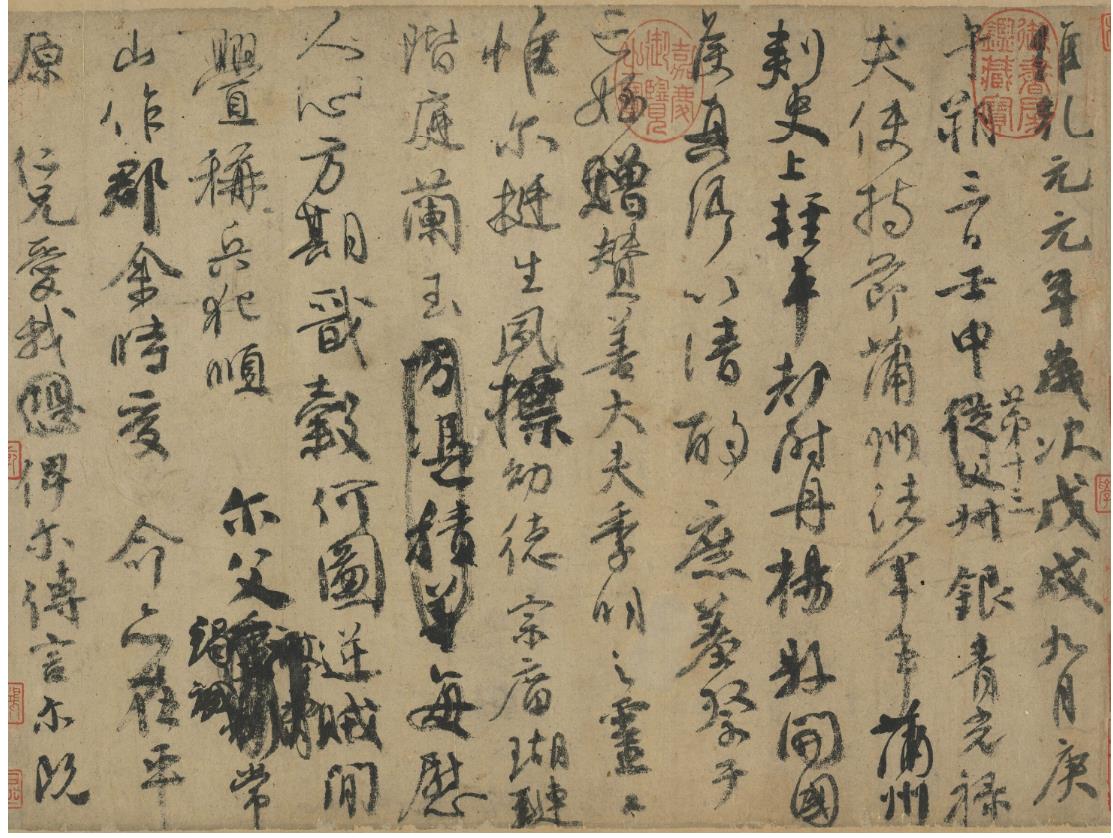 維乾元元年歲次戊戌九月庚
午朔三日壬申從父叔銀青光祿
第十三
夫使持節蒲州諸軍事蒲州
刺史上輕車都尉丹楊縣開國
侯真卿以清酌庶羞祭于
亡姪贈贊善大夫季明之靈曰
惟尔挺生夙標幼德宗廟瑚璉
階庭蘭玉方憑積善每慰
人心方期戩穀何圖逆賊間
釁稱兵犯順尔父竭誠常
山作郡余時受命亦在平
原仁兄愛我恐俾尔傳言尔既
御書房鑑藏寶
嘉慶御覽之寶